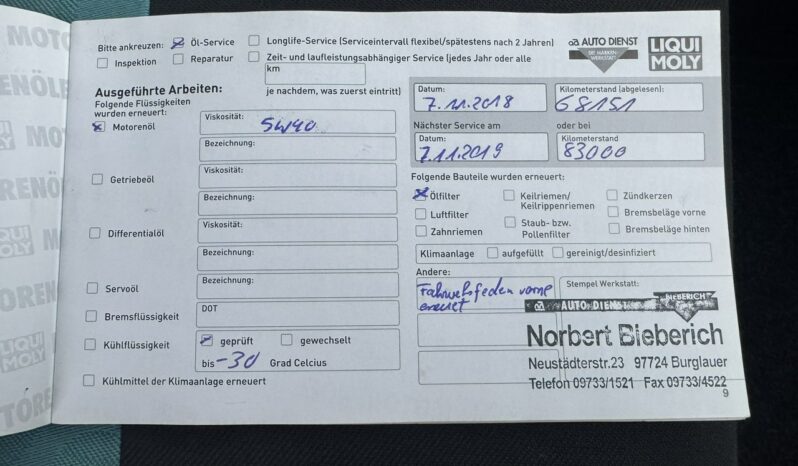 Bitte ankreuzen: Öl-Service Longlife-Service (Serviceintervall flexibel/spätestens nach 2 Jahren)
Inspektion Reparatur Zeit- und laufleistungsabhängiger Service (jedes Jahr oder alle
km
je nachdem, was zuerst eintritt)
AUTO DIENST
DIE MARKEN-
WERKSTATT
LIQUI
MOLY
Ausgeführte Arbeiten:
Folgende Flüssigkeiten
wurden erneuert:
Motorenöl
Viskosität: 5W40
Bezeichnung:
Getriebeöl
Viskosität:
Bezeichnung:
Differentialöl
Viskosität:
Bezeichnung:
Servoöl
Bezeichnung:
Bremsflüssigkeit
DOT
Kühlflüssigkeit
geprüft gewechselt
bis -30 Grad Celcius
Kühlmittel der Klimaanlage erneuert
Datum: 7.11.2018
Kilometerstand (abgelesen): 68151
Nächster Service am oder bei
Datum: 7.11.2019
Kilometerstand 83000
Folgende Bauteile wurden erneuert:
Ölfilter Keilriemen/ Zündkerzen
Keilrippenriemen
Luftfilter Staub- bzw. Bremsbeläge vorne
Pollenfilter
Zahnriemen Bremsbeläge hinten
Klimaanlage aufgefüllt gereinigt/desinfiziert
Andere:
Fahrwerksfedern vorne
erneuert
Stempel Werkstatt:
AUTO DIENST BIEBERICH
Norbert Bieberich
Neustädterstr.23 97724 Burglauer
Telefon 09733/1521 Fax 09733/4522
9
MOTO
LIQUI
MOLY